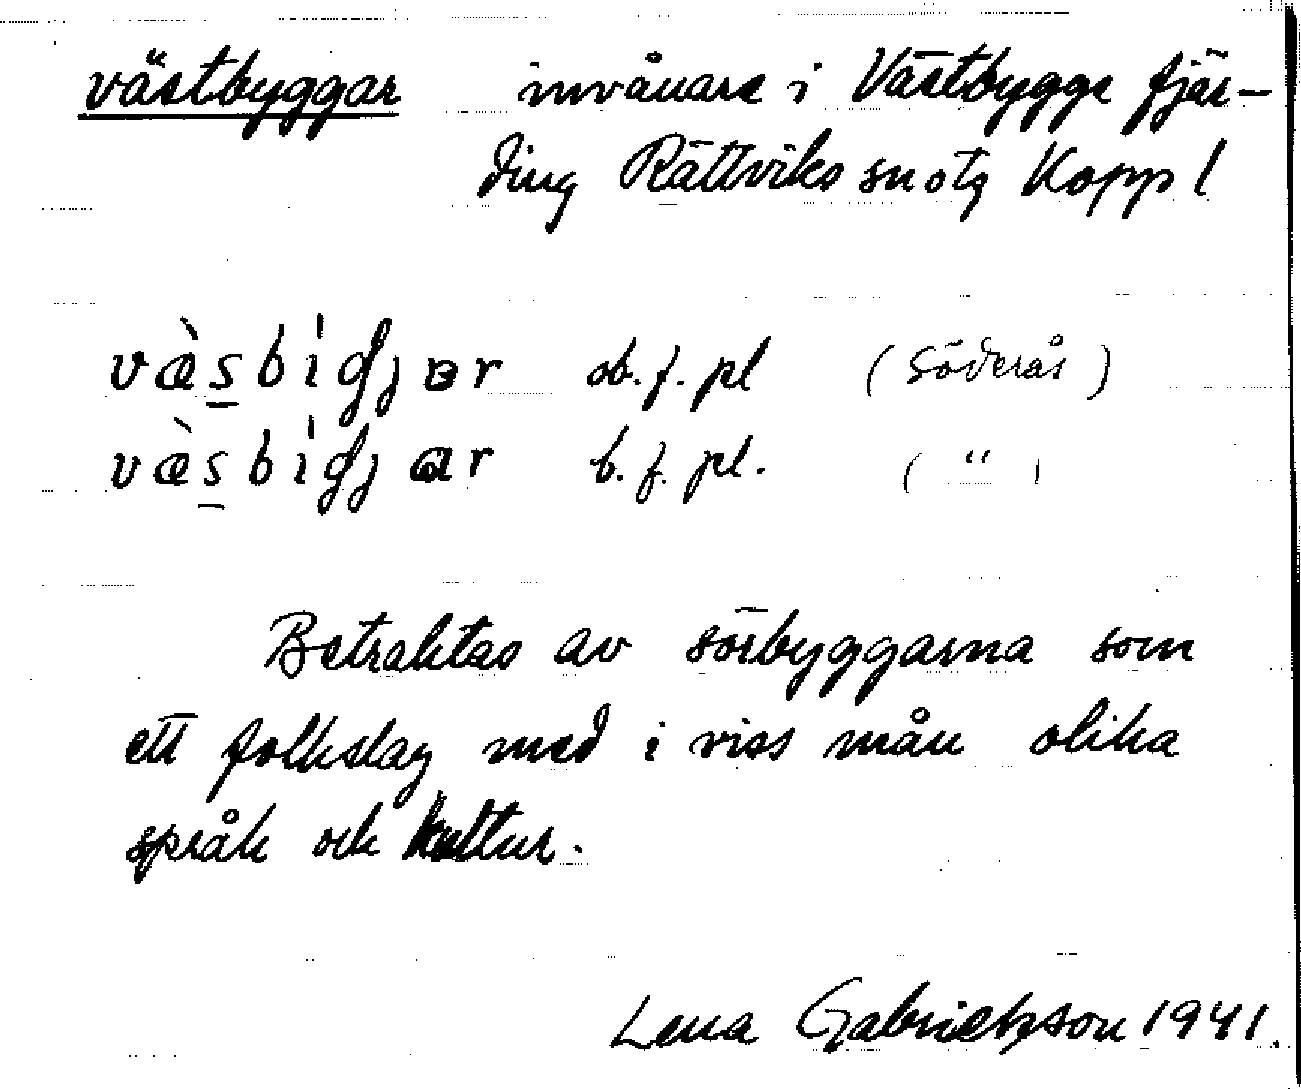 västbyggar invånare i Västbygge fjär-
ding Rättviks sn otg Koppl
væ̀s̲bígjɐr ob. f. pl (Söderås)
væ̀s̲bígjɑr b. f. pl. ( " )
Betraktas av sörbyggarna som
ett folkslag med i viss mån olika
språk och kultur.
Lena Gabrielsson 1941.